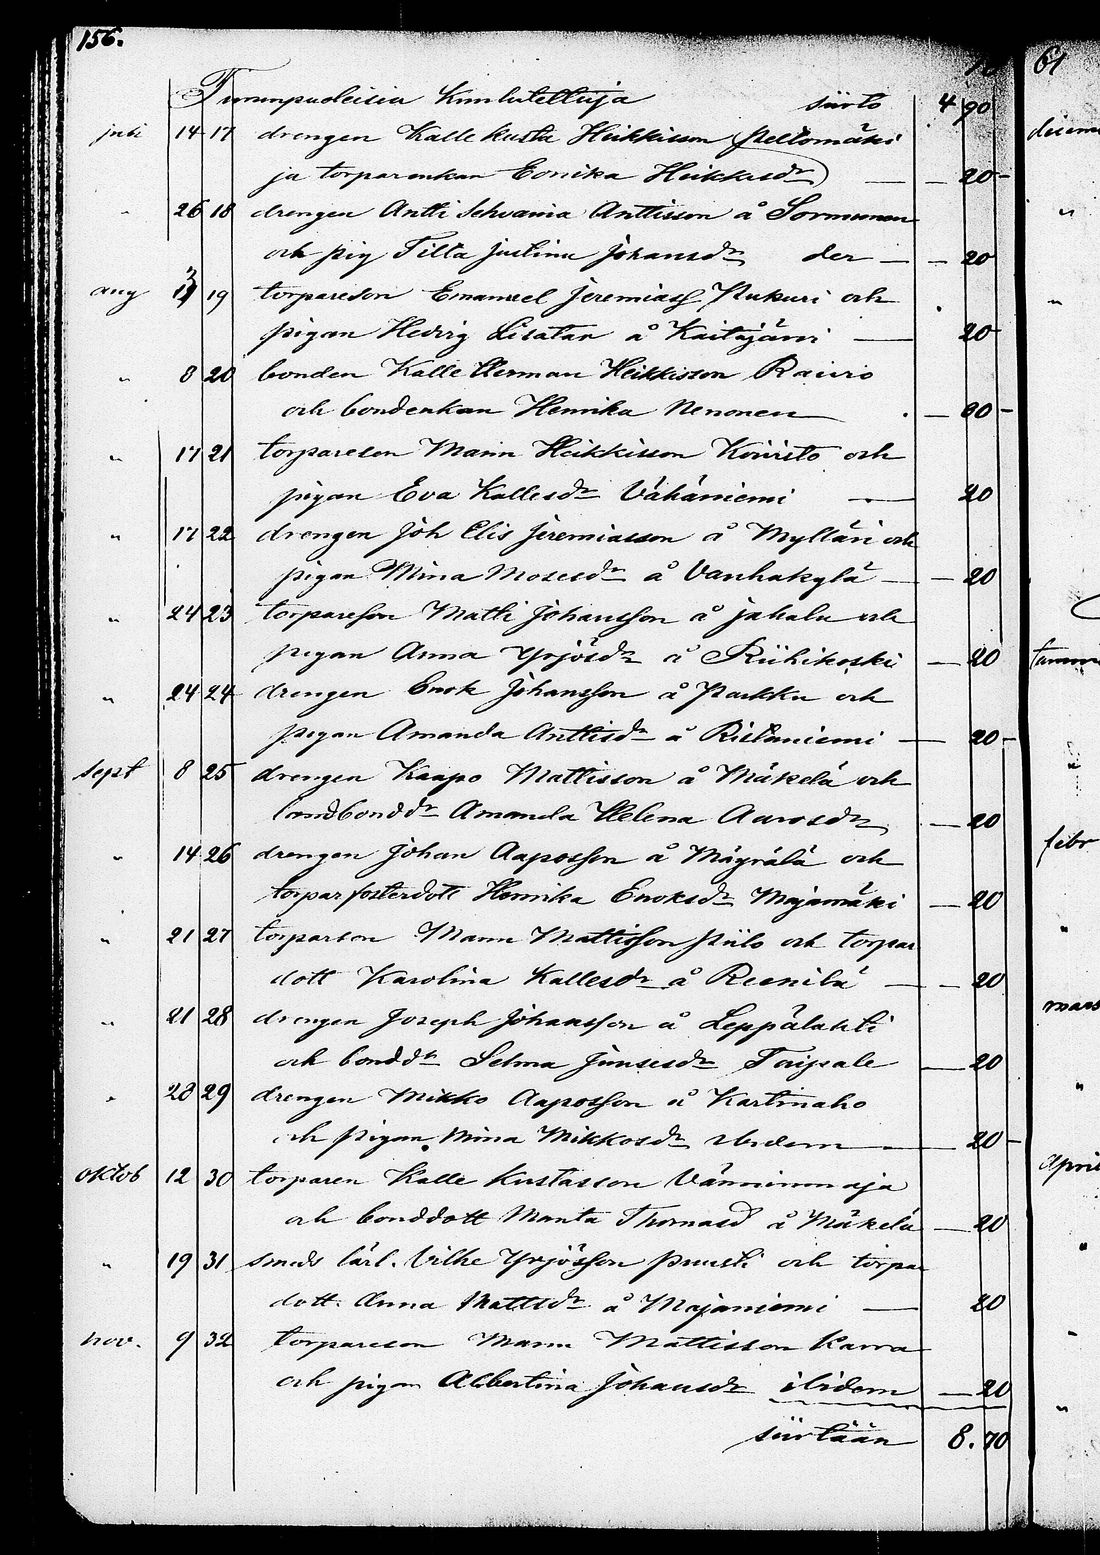 156.
kuulutettuja siirto 4 90
juli 14 17 drengen Kalle Kusta Heikkisson Peltomäki
ja torparenkan Eonika Heikkisdr — 20 -
" 26 18 drengen Antti Anttisson å Sormunen
och pig Tilta Justina Johansdr der — 20
aug 3 19 torpareson Emanuel Jeremiass Kukuri och
pigan Hedvig Lisatar å Kaitajärvi — 20
" 8 20 bonden Kalle Herman Heikkisson Raivio
och bondenkan Henrika Nenonen — 20 -
" 17 21 torpareson Mann Heikkisson Koivisto och
pigan Eva Kallesdr Vähäniemi — 20
" 17 22 drengen Joh Elis Jeremiasson å Mylläri och
pigan Mina Mosesdr å Vanhakylä — 20
" 24 23 torpareson Matti Johansson å Jakalu och
pigan Anna Yrjösdr å Riihikoski — 20
" 24 24 drengen Enok Johansson å Parkku och
pigan Amanda Anttisdr å Ristaniemi — 20 -
Sept 8 25 drengen Kaapo Mattisson å Mäkelä och
landbonddr Amanda Helena Aarosdr — 20
" 14 26 drengen Johan Aaposson å Mäyrälä och
torparfosterdott Henrika Enoksdr Majamäki — 20
" 21 27 torparson Mann Mattisson Piilo och torpar
dott Karolina Kallesdr å Reenilä — 20
" 21 28 drengen Joseph Johansson å Leppälahti
och bonddr Selma Juusesdr Taipale — 20
" 28 29 drengen Mikko Aaposson å Kartinaho
och pigan Mina Mikkosdr ibidem — 20 -
oktob 12 30 torparen Kalle Kustasson Vänninmaja
och bonddott Manta Thomasd å Mäkelä — 20
" 19 31 smeds lärl. Vilhe Yrjösson Puusti och torpar
dott. Anna Mattsdr å Majaniemi — 20
nov. 9 32 torpareson Mann Mattisson Karra
och pigan Albertina Johansdr ibidem — 20
siirtään 8.70
61
"
"
febr
"
mars
"
april
"
"
"